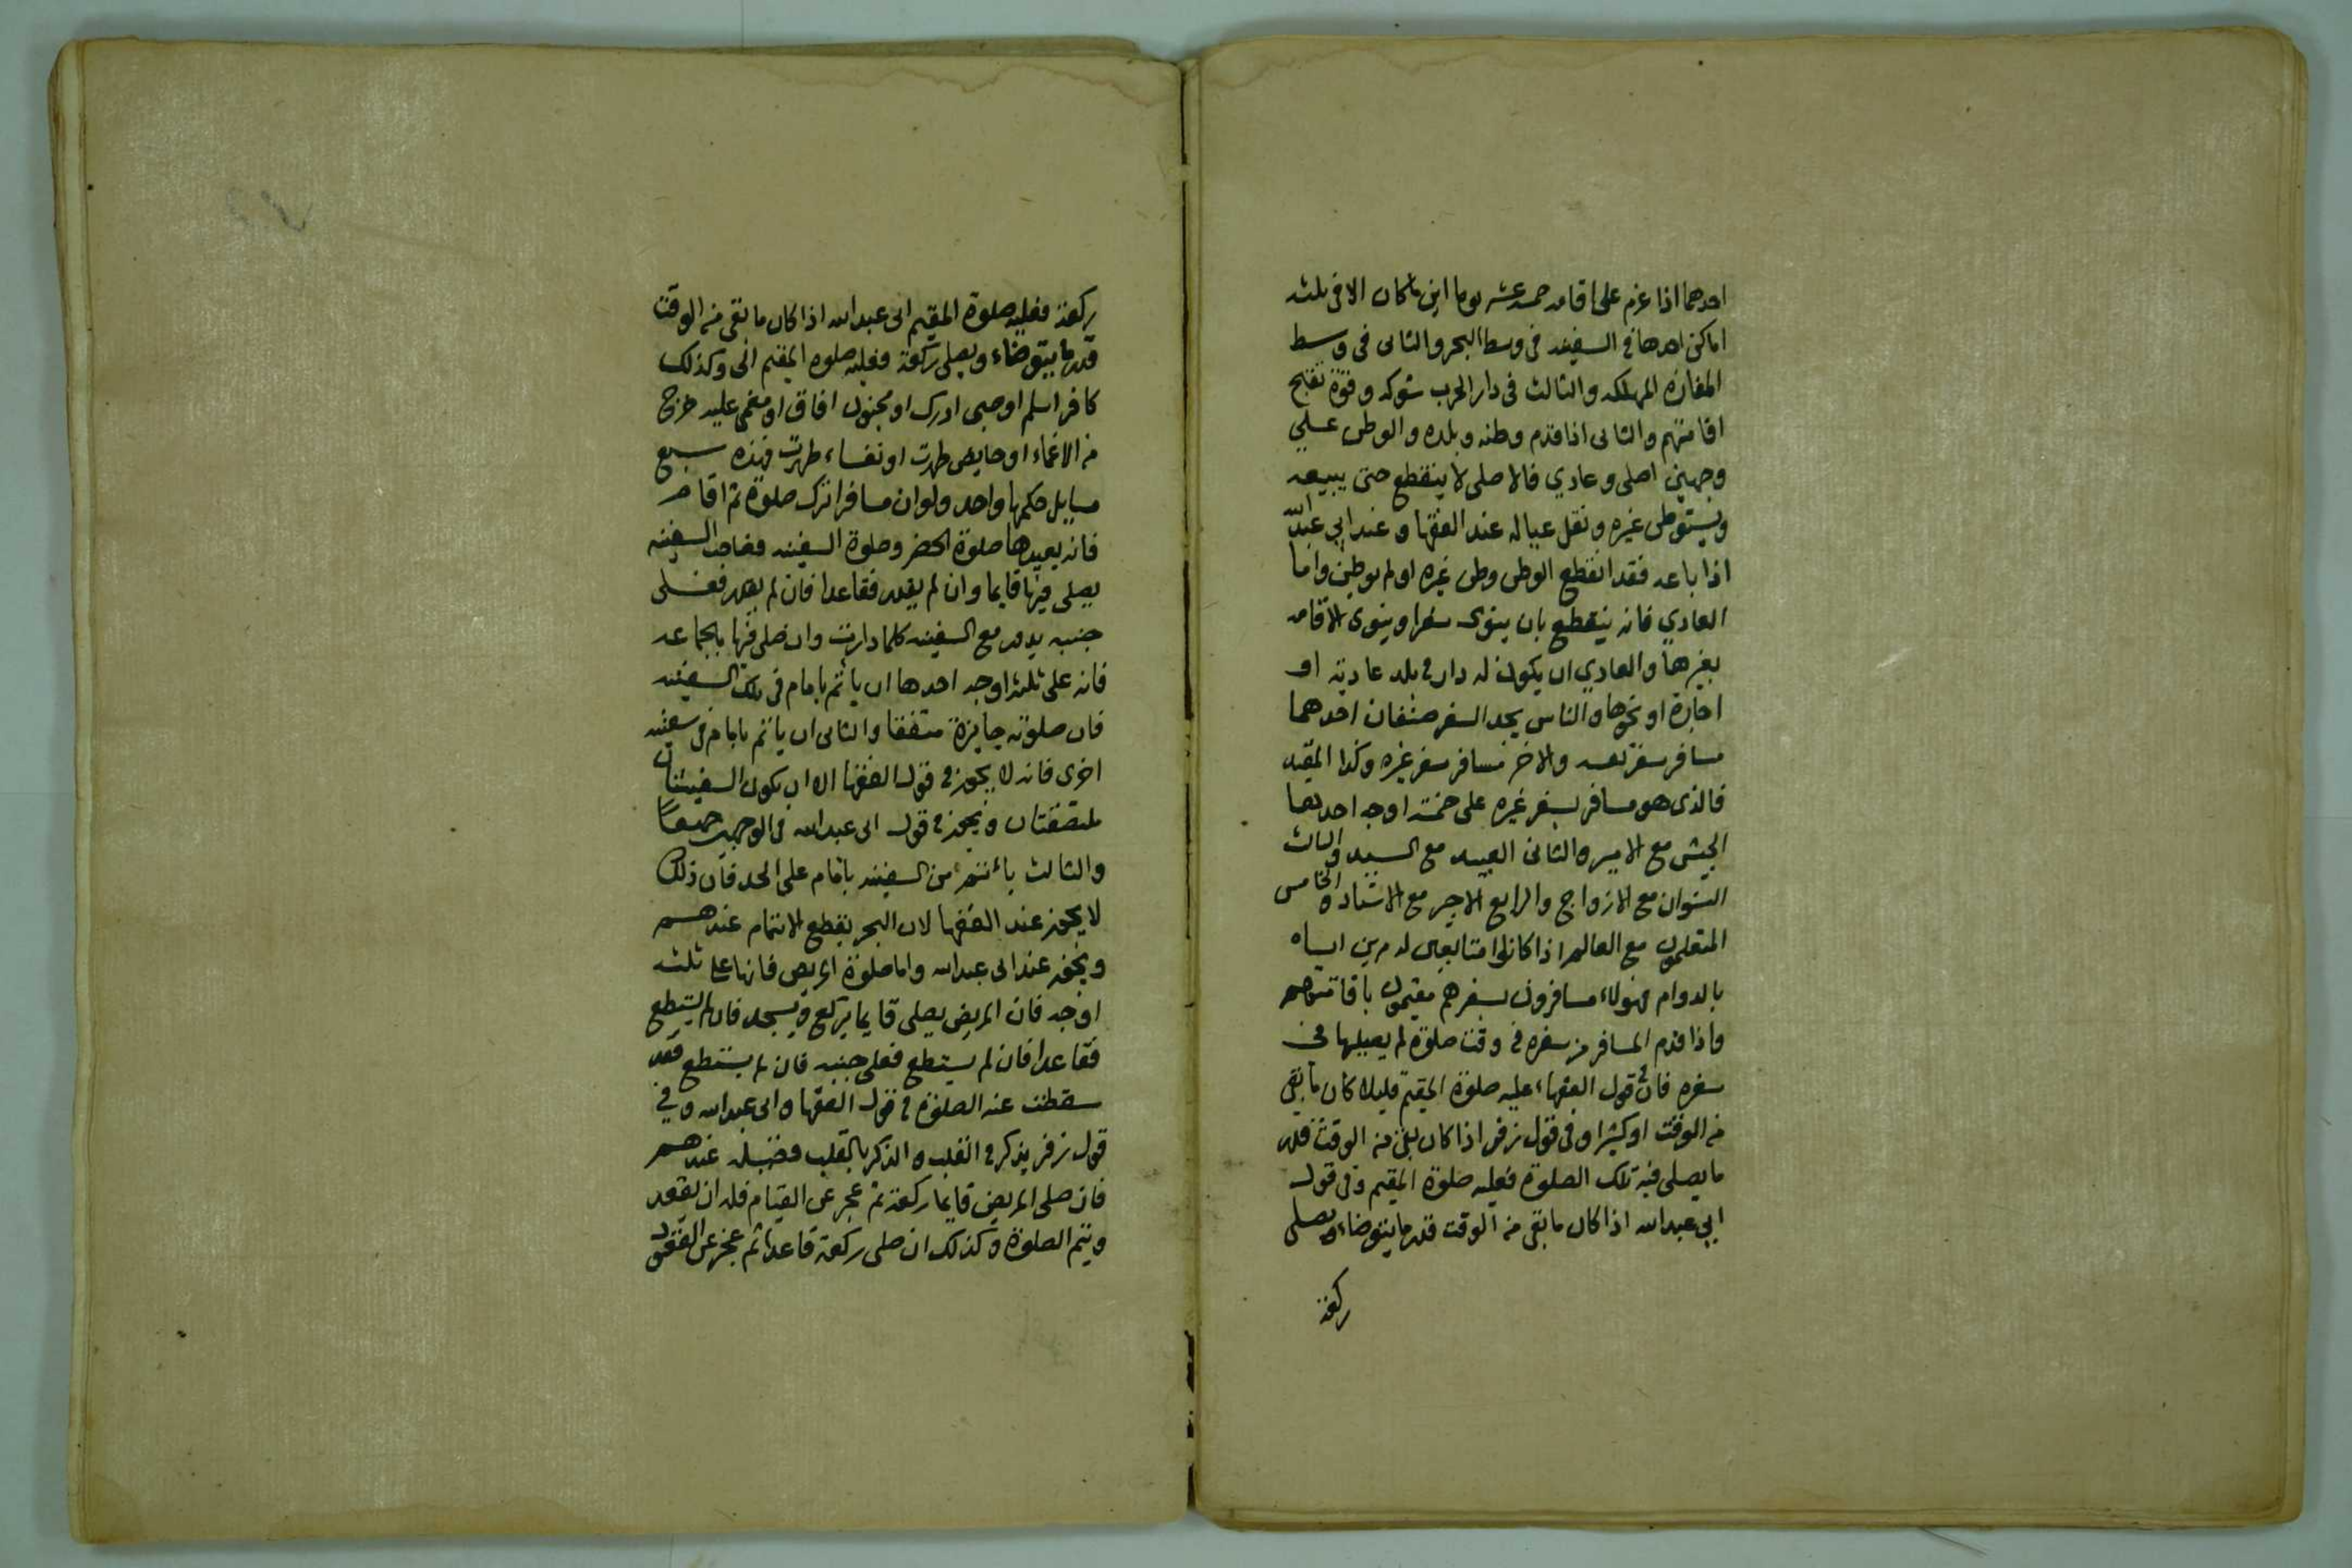 احدهما اذا عزم على اقامه خمسه عشر يوما اين ما كان الا فى ثلثه
اماكن احدها فى السفينه فى وسط البحر والثانى فى وسط
المفازه المهلكه والثالث فى دار الحرب شوكه وقوة
اقامتهم والثانى اذا قدم وطنه وبلده والوطن على
وجهين اصلى وعادي فالاصلى لا ينقطع حتى يبيعه
ويستوطن غيره ونقل عياله عند الفقها وعند ابي عبدالله
اذا باعه فقد انقطع الوطن وطن غيره او لم يوطين واما
العادي فانه ينقطع بان ينوى سفرا وينوى الاقامه
بغيرها والعادي ان يكون له دار فى بلد عادية او
اجارة او نحوها والناس بحد السفر صنفان احدهما
مسافر سفر نفسه والاخر مسافر سفر غيره وكذا المقيم
فالذى هو مسافر بسفر غيره على خمسة اوجه احدهما
الجيش مع الامير والثانى العبيد مع السيد والثالث
النسوان مع الازواج والرابع الاجير مع الاستاد والخامس
المتعلمون مع العالم اذا كانوا متابعين له مرين اياه
بالدوام فهولاء مسافرون بسفرهم مقيمون باقامتهم
واذا قدم المسافر من سفره فى وقت صلوة لم يصليها فى
سفره فان فى قول الفقهاء عليه صلوة المقيم قليلا كان ما بقى
من الوقت او كثيرا وفى قول زفر اذا كان بقى من الوقت قدر
ما يصلى فيه تلك الصلوة فعليه صلوة المقيم وفى قول
ابى عبدالله اذا كان ما بقى من الوقت قدر ما يتوضاء ويصلى
ركعة
ركعة فعليه صلوة المقيم ابى عبدالله اذا كان ما بقى من الوقت
قدر ما يتوضاء ويصلى ركعة فعليه صلوه المقيم اتى وكذلك
كافر اسلم او صبى ادرك او مجنون افاق او مغمى عليه خرج
من الاغماء او حايض طهرت او نفساء طهرت فهذه سبع
مسايل حكمها واحد ولو ان مسافرا ترك صلوة ثم اقام
فانه يعيدها صلوة الحضر وصلوة السفينه فصاحب السفينه
يصلى فيها قايما وان لم يقدر فقاعدا فان لم يقدر فعلى
جنبه يدور مع السفينه كلما دارت وان صلى فيها بالجماعه
فانه على ثلثه اوجه احدها ان يأتم بامام فى تلك السفينه
فان صلوته جايزة متفقا والثانى ان ياتم بامام فى سفينه
اخرى فانه لا يجوز فى قول الفقها الا ان يكون السفينتان
ملتصقتان ويجوز فى قول ابى عبدالله فى الوجهين جميعا
والثالث يأتم من السفينه بامام على الحد فان ذلك
لا يجوز عند الفقها لان البحر يقطع الائتمام عندهم
ويجوز عند ابى عبدالله واما صلوة المريض فانها على ثلثه
اوجه فان المريض يصلى قايما يركع ويسجد فان لم يستطع
فقاعدا فان لم يستطع فعلى جنبه فان لم يستطع فقد
سقطت عنه الصلوة فى قول الفقها وابى عبدالله وفى
قول زفر يذكر فى القلب والذكر بالقلب فضيله عندهم
فان صلى المريض قايما ركعة ثم عجز عن القيام فله ان يقعد
ويتم الصلوة وكذلك ان صلى ركعة قاعدا ثم عجز عن القعود